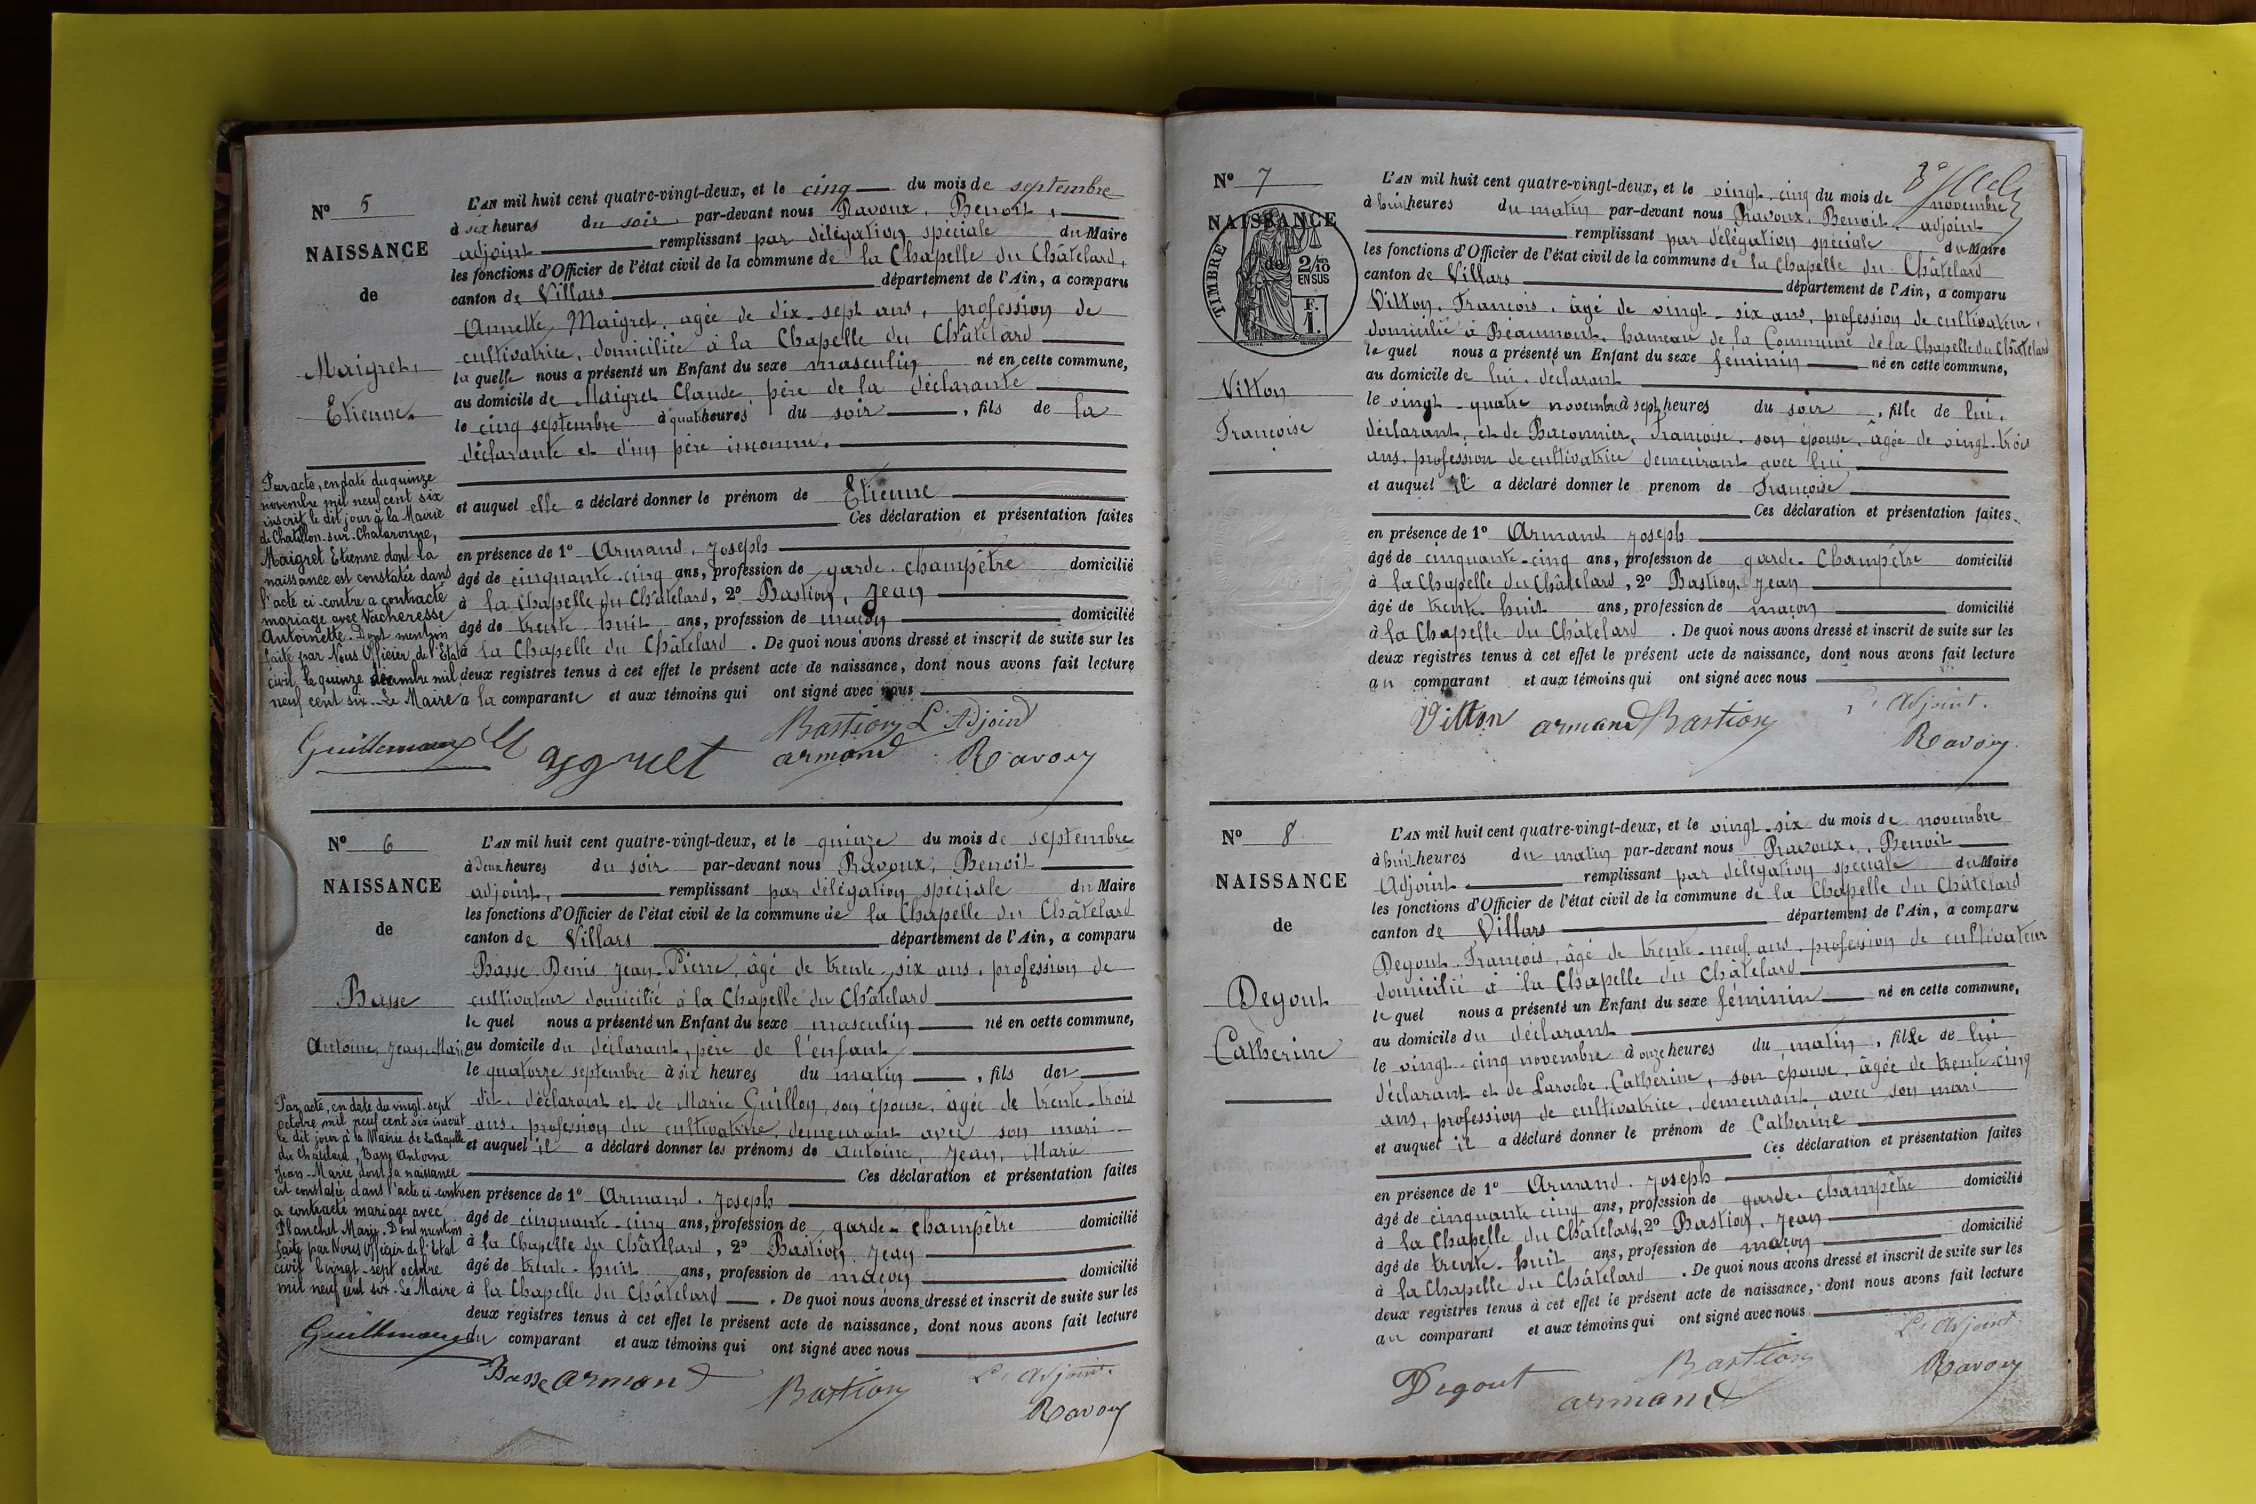 N° 5
NAISSANCE
de
Maigret,
Etienne.
L'AN mil huit cent quatre-vingt-deux, et le cinq du mois de septembre
à six heures du soir, par-devant nous Ravoux, Benoit,
adjoint remplissant par délégation spéciale du Maire
les fonctions d'Officier de l'état civil de la commune de la Chapelle du Châtelard,
canton de Villars département de l'Ain, a comparu
Annette Maigret, agée de dix-sept ans, profession de
cultivatrice, domiciliée à la Chapelle du Châtelard
la quelle nous a présenté un Enfant du sexe masculin né en cette commune,
au domicile de Maigret Claude, père de la déclarante
le cinq septembre à quatre heures du soir, fils de la
déclarante et d'un père inconnu.
et auquel elle a déclaré donner le prénom de Etienne
Ces déclaration et présentation faites
en présence de 1° Armand, Joseph
âgé de cinquante-cinq ans, profession de garde-champêtre domicilié
à la Chapelle du Châtelard, 2° Bastion, Jean
âgé de trente-huit ans, profession de maçon domicilié
à la Chapelle du Châtelard. De quoi nous avons dressé et inscrit de suite sur les
deux registres tenus à cet effet le présent acte de naissance, dont nous avons fait lecture
a la comparante et aux témoins qui ont signé avec nous
Par acte, en date du quinze
novembre mil neuf cent six
inscrit le dit jour à la Mairie
de Chatillon-sur-Chalaronne,
Maigret Etienne dont la
naissance est constatée dans
l'acte ci-contre a contracté
mariage avec Vacheresse
Antoinette. Dont mention
faite par Nous Officier de l'Etat
civil le quinze décembre mil
neuf cent six. Le Maire
Guillemaux
Bastion L'Adjoint
armand Ravoux
N° 6
NAISSANCE
de
Basse
Antoine, Jean, Marie
L'AN mil huit cent quatre-vingt-deux, et le quinze du mois de septembre
à deux heures du soir par-devant nous Ravoux, Benoit
adjoint, remplissant par délégation spéciale du Maire
les fonctions d'Officier de l'état civil de la commune de la Chapelle du Châtelard
canton de Villars département de l'Ain, a comparu
Basse Denis Jean-Pierre, âgé de trente-six ans, profession de
cultivateur domicilié à la Chapelle du Châtelard
le quel nous a présenté un Enfant du sexe masculin né en cette commune,
au domicile du déclarant, père de l'enfant
le quatorze septembre à six heures du matin, fils de
dit déclarant et de Marie Guillon, son épouse, âgée de trente-trois
ans, profession de cultivatrice, demeurant avec son mari
et auquel il a déclaré donner les prénoms de Antoine, Jean, Marie
Ces déclaration et présentation faites
en présence de 1° Armand, Joseph
âgé de cinquante-cinq ans, profession de garde-champêtre domicilié
à la Chapelle du Châtelard, 2° Bastion, Jean
âgé de trente-huit ans, profession de maçon domicilié
à la Chapelle du Châtelard. De quoi nous avons dressé et inscrit de suite sur les
deux registres tenus à cet effet le présent acte de naissance, dont nous avons fait lecture
au comparant et aux témoins qui ont signé avec nous
Par acte, en date du vingt-sept
octobre mil neuf cent six inscrit
le dit jour à la Mairie de La Chapelle
du Chatelard, Basse Antoine
Jean-Marie dont la naissance
est constatée dans l'acte ci-contre
a contracté mariage avec
Planchet Marie. Dont mention
faite par Nous Officier de l'Etat
civil le vingt-sept octobre
mil neuf cent six. Le Maire
Guillemaux
Basse armand
Bastion
L'Adjoint.
Ravoux
N° 7
NAISSANCE
de
TIMBRE
2/10
EN SUS
F.
1.
Vitton
Françoise
L'AN mil huit cent quatre-vingt-deux, et le vingt-cinq du mois de novembre
à huit heures du matin par-devant nous Ravoux, Benoit, adjoint
remplissant par délégation spéciale du Maire
les fonctions d'Officier de l'état civil de la commune de la Chapelle du Châtelard
canton de Villars département de l'Ain, a comparu
Vitton, François, âgé de vingt-six ans, profession de cultivateur,
domicilié à Beaumont, hameau de la Commune de la Chapelle du Châtelard
le quel nous a présenté un Enfant du sexe féminin né en cette commune,
au domicile de lui, déclarant
le vingt-quatre novembre à sept heures du soir, fille de lui,
déclarant, et de Baconnier, Françoise, son épouse, âgée de vingt-trois
ans, profession de cultivatrice demeurant avec lui
et auquel il a déclaré donner le prénom de Françoise
Ces déclaration et présentation faites
en présence de 1° Armand Joseph
âgé de cinquante-cinq ans, profession de garde-Champêtre domicilié
à la Chapelle du Châtelard, 2° Bastion, Jean
âgé de trente-huit ans, profession de maçon domicilié
à la Chapelle du Châtelard. De quoi nous avons dressé et inscrit de suite sur les
deux registres tenus à cet effet le présent acte de naissance, dont nous avons fait lecture
au comparant et aux témoins qui ont signé avec nous
Vitton armand Bastion L'Adjoint.
Ravoux
N° 8
NAISSANCE
de
Degout
Catherine
L'AN mil huit cent quatre-vingt-deux, et le vingt-six du mois de novembre
à huit heures du matin par-devant nous Ravoux, Benoit
Adjoint remplissant par délégation spéciale du Maire
les fonctions d'Officier de l'état civil de la commune de la Chapelle du Châtelard
canton de Villars département de l'Ain, a comparu
Degout François, âgé de trente-neuf ans, profession de cultivateur
domicilié à la Chapelle du Châtelard
le quel nous a présenté un Enfant du sexe féminin né en cette commune,
au domicile du déclarant
le vingt-cinq novembre à onze heures du matin, fille de lui
déclarant et de Laroche Catherine, son épouse, âgée de trente-cinq
ans, profession de cultivatrice, demeurant avec son mari
et auquel il a déclaré donner le prénom de Catherine
Ces déclaration et présentation faites
en présence de 1° Armand, Joseph
âgé de cinquante cinq ans, profession de garde-champêtre domicilié
à la Chapelle du Châtelard, 2° Bastion, Jean
âgé de trente-huit ans, profession de maçon domicilié
à la Chapelle du Châtelard. De quoi nous avons dressé et inscrit de suite sur les
deux registres tenus à cet effet le présent acte de naissance, dont nous avons fait lecture
au comparant et aux témoins qui ont signé avec nous
Degout armand Bastion L'Adjoint
Ravoux